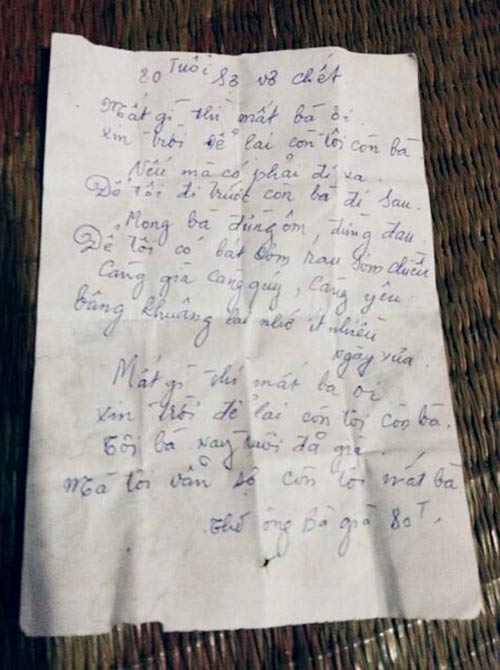 80 Tuổi sợ vợ chết
Mất gì thì mất bà ơi
xin trời để lại còn tôi còn bà.
Nếu mà có phải đi xa.
Để tôi đi trước còn bà đi sau.
Mong bà đừng ốm, đừng đau.
Để tôi có bát cơm rau sớm chiều
Càng già càng quý, càng yêu.
bâng khuâng lại nhớ ít nhiều
ngày xưa.
Mất gì thì mất bà ơi
xin trời để lại còn tôi còn bà.
Tôi bà nay tuổi đã già.
Mà tôi vẫn sợ còn tôi mất bà
Thơ ông Bà già 80T.